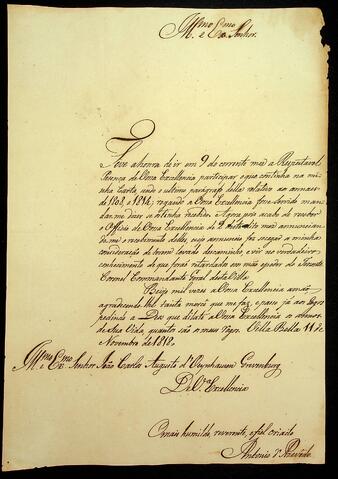 Illmo e Exmo Senhor.
Tive a honra de ir em 9 do corrente mez a Respeitavel
Prença de Vossa Excellencia participar o que continha na mi-
nha Carta, sendo o ultimo paragrafo della relativo aos annaes
de 1808, e 1814; rogando a Vossa Excellencia fosse servido man-
dar me dizer se os tinha recebido. Agora por acabo de receber
o Officio de Vossa Excellencia de 2 deste dito mez annuncian-
do me o recebimento delles, cujo annuncio fez socegar a minha
consideração de terem levado descaminho, e vir no verdadeiro
conhecimento de que forão retardados em mão e poder do Tenente
Coronel Commandante Geral desta Villa.
Beijo mil vezes a Vossa Excellencia as mãos
agradecendo lhe tanta mercê que me faz, e passo já aos logos
pedindo a Deos que dilate a Vossa Excellencia os annos
de Sua Vida, quantos são os meus rogos. Villa Bella 11 de
Novembro de 1818.
Illmo e Exmo Senhor João Carlos Augusto d'Oyenhausen Grevenburg
De Va Excellencia
O mais humilde, reverente, e fiel criado
Antonio d'Azevedo